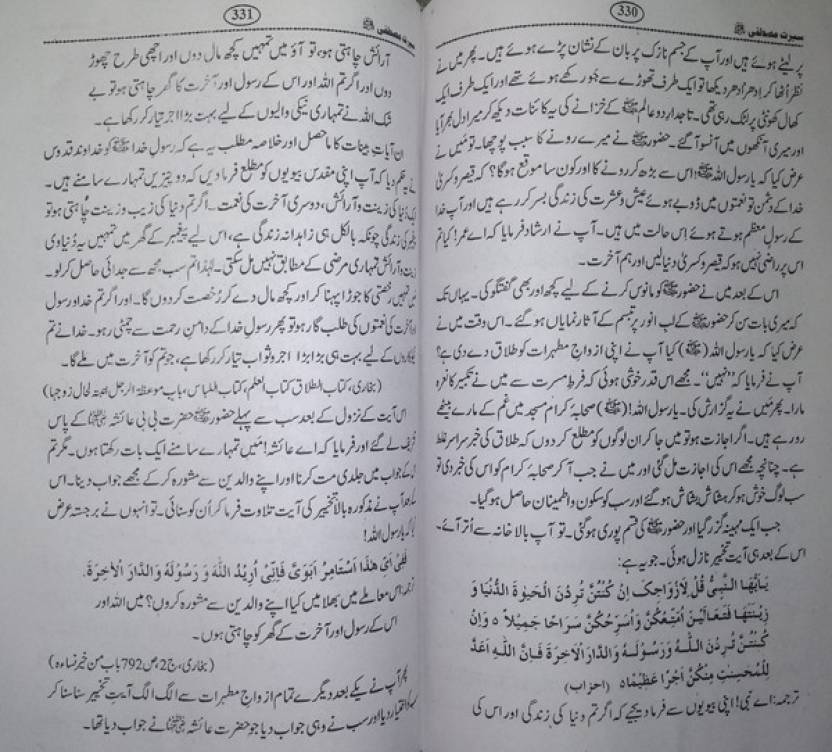 330
سیرت مصطفی ﷺ
پر لیٹے ہوئے ہیں اور آپ کے جسم نازک پر بان کے نشان پڑے ہوئے ہیں۔ پھر میں نے
نظر اُٹھا کر اِدھر اُدھر دیکھا تو ایک طرف تھوڑے سے جَو رکھے ہوئے تھے اور ایک طرف ایک
کھال کھونٹی پر لٹک رہی تھی۔ تاجدار دو عالم ﷺ کے خزانے کی یہ کائنات دیکھ کر میرا دل بھر آیا
اور میری آنکھوں میں آنسو آگئے۔ حضور ﷺ نے میرے رونے کا سبب پوچھا۔ تو مَیں نے
عرض کیا کہ یارسول اللہ ﷺ! اس سے بڑھ کر رونے کا اور کون سا موقع ہوگا؟ کہ قیصر و کسریٰ
خدا کے دشمن تو نعمتوں میں ڈوبے ہوئے عیش و عشرت کی زندگی بسر کر رہے ہیں اور آپ خدا
کے رسولِ معظم ہوتے ہوئے اِس حالت میں ہیں۔ آپ نے ارشاد فرمایا کہ اے عمر! کیا تم
اس پر راضی نہیں ہو کہ قیصر و کسریٰ دنیا لیں اور ہم آخرت۔
اس کے بعد میں نے حضور ﷺ کو مانوس کرنے کے لیے کچھ اور بھی گفتگو کی۔ یہاں تک
کہ میری بات سن کر حضور ﷺ کے لب انور پر تبسم کے آثار نمایاں ہو گئے۔ اس وقت میں نے
عرض کیا کہ یارسول اللہ (ﷺ) کیا آپ نے اپنی ازواج مطہرات کو طلاق دے دی ہے؟
آپ نے فرمایا کہ ’’نہیں‘‘۔ مجھے اس قدر خوشی ہوئی کہ فرطِ مسرت سے میں نے تکبیر کا نعرہ
مارا۔ پھر مَیں نے یہ گزارش کی۔ یارسول اللہ! (ﷺ) صحابۂ کرام مسجد میں غم کے مارے بیٹھے
رو رہے ہیں۔ اگر اجازت ہو تو میں جا کر ان لوگوں کو مطلع کر دوں کہ طلاق کی خبر سراسر غلط
ہے۔ چنانچہ مجھے اس کی اجازت مل گئی اور میں نے جب آ کر صحابۂ کرام کو اس کی خبر دی تو
سب لوگ خوش ہو کر ہشاش بشاش ہو گئے اور سب کو سکون و اطمینان حاصل ہو گیا۔
جب ایک مہینہ گزر گیا اور حضور ﷺ کی قسم پوری ہو گئی۔ تو آپ بالا خانہ سے اُتر آئے۔
اس کے بعد ہی آیت تخییر نازل ہوئی۔ جو یہ ہے:
یٰۤاَیُّهَا النَّبِیُّ قُلْ لِّاَزْوَاجِكَ اِنْ كُنْتُنَّ تُرِدْنَ الْحَیٰوةَ الدُّنْیَا وَ
زِیْنَتَهَا فَتَعَالَیْنَ اُمَتِّعْكُنَّ وَاُسَرِّحْكُنَّ سَرَاحًا جَمِیْلًا ۝ وَاِنْ
كُنْتُنَّ تُرِدْنَ اللّٰهَ وَرَسُوْلَهٗ وَالدَّارَ الْاٰخِرَةَ فَاِنَّ اللّٰهَ اَعَدَّ
لِلْمُحْسِنٰتِ مِنْكُنَّ اَجْرًا عَظِیْمًا ۝ (احزاب)
ترجمہ: اے نبی! اپنی بیویوں سے فرما دیجیے کہ اگر تم دنیا کی زندگی اور اس کی
331
سیرت مصطفی ﷺ
آرائش چاہتی ہو، تو آؤ میں تمہیں کچھ مال دوں اور اچھی طرح چھوڑ
دوں اور اگر تم اللہ اور اس کے رسول اور آخرت کا گھر چاہتی ہو تو بے
شک اللہ نے تمہاری نیکی والیوں کے لیے بہت بڑا اجر تیار کر رکھا ہے۔
ان آیاتِ بینات کا ماحصل اور خلاصہ مطلب یہ ہے کہ رسولِ خدا ﷺ کو خداوند قدوس
نے حکم دیا کہ آپ اپنی مقدس بیویوں کو مطلع فرما دیں کہ دو چیزیں تمہارے سامنے ہیں۔
ایک دُنیا کی زینت و آرائش، دوسری آخرت کی نعمت۔ اگر تم دنیا کی زیب و زینت چاہتی ہو تو
پیغمبر کی زندگی چونکہ بالکل ہی زاہدانہ زندگی ہے، اس لیے پیغمبر کے گھر میں تمہیں یہ دُنیاوی
زینت و آرائش تمہاری مرضی کے مطابق نہیں مل سکتی۔ لہٰذا تم سب مجھ سے جدائی حاصل کر لو۔
میں تمہیں رخصتی کا جوڑا پہنا کر اور کچھ مال دے کر رُخصت کر دوں گا۔ اور اگر تم خدا و رسول
اور آخرت کی نعمتوں کی طلب گار ہو تو پھر رسولِ خدا کے دامنِ رحمت سے چمٹی رہو۔ خدا نے تم
نیکوکاروں کے لیے بہت ہی بڑا بڑا اجر و ثواب تیار کر رکھا ہے، جو تم کو آخرت میں ملے گا۔
(بخاری، کتاب الطلاق، کتاب العلم، کتاب اللباس، باب موعظۃ الرجل ابنتہ لحال زوجہا)
اس آیت کے نزول کے بعد سب سے پہلے حضور ﷺ حضرت بی بی عائشہ رضی اللہ عنہا کے پاس
تشریف لے گئے اور فرمایا کہ اے عائشہ! مَیں تمہارے سامنے ایک بات رکھتا ہوں۔ مگر تم
اس کے جواب میں جلدی مت کرنا اور اپنے والدین سے مشورہ کر کے مجھے جواب دینا۔ اس
کے بعد آپ نے مذکورہ بالا تخییر کی آیت تلاوت فرما کر اُن کو سنائی۔ تو انہوں نے برجستہ عرض
کیا کہ یارسول اللہ!
فَفِیْ اَیِّ هٰذَا اَسْتَامِرُ اَبَوَیَّ فَاِنِّیْ اُرِیْدُ اللّٰهَ وَ رَسُوْلَهٗ وَ الدَّارَ الْاٰخِرَةَ.
ترجمہ: اس معاملے میں بھلا میں کیا اپنے والدین سے مشورہ کروں؟ میں اللہ اور
اس کے رسول اور آخرت کے گھر کو چاہتی ہوں۔
(بخاری، ج2، ص792 باب من خیر نساءہ)
پھر آپ نے یکے بعد دیگرے تمام ازواجِ مطہرات سے الگ الگ آیتِ تخییر سنا سنا کر
سب کو اختیار دیا اور سب نے وہی جواب دیا جو حضرت عائشہ رضی اللہ عنہا نے جواب دیا تھا۔